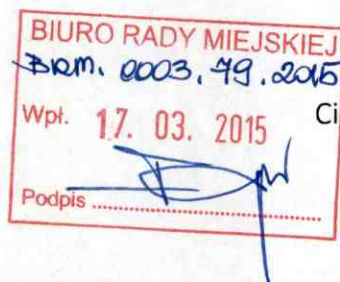 BIURO RADY MIEJSKIEJ
BRM. 0003.79.2015
Wpł. 17. 03. 2015
Ci
Podpis